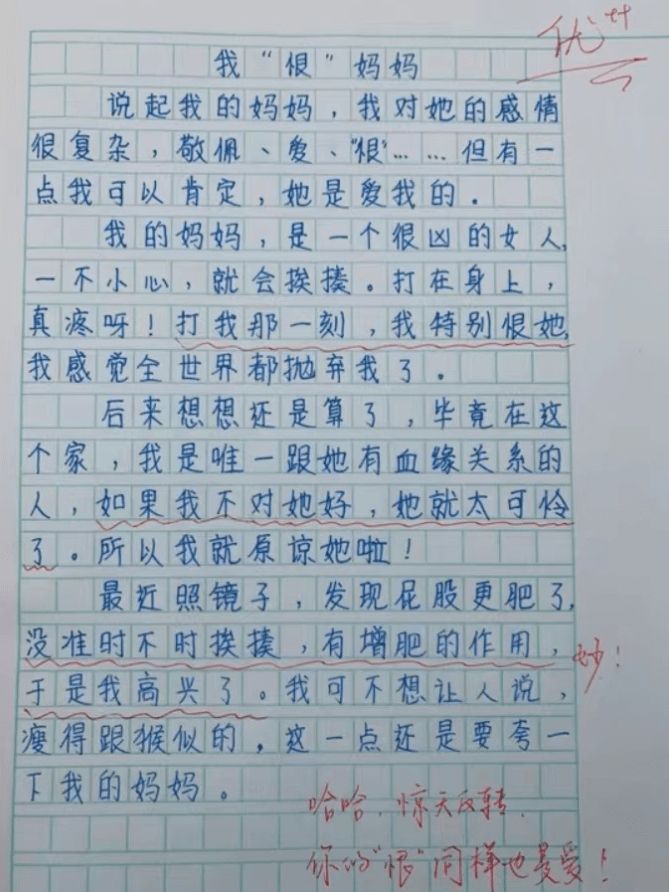 优++
我“恨”妈妈
说起我的妈妈，我对她的感情
很复杂，敬佩、爱、“恨”……但有一
点我可以肯定，她是爱我的．
我的妈妈，是一个很凶的女人，
一不小心，就会挨揍。打在身上，
真疼呀！打我那一刻，我特别恨她，
我感觉全世界都抛弃我了．
后来想想还是算了，毕竟在这
个家，我是唯一跟她有血缘关系的
人，如果我不对她好，她就太可怜
了。所以我就原谅她啦！
最近照镜子，发现屁股更肥了，
没准时不时挨揍，有增肥的作用，
妙！
于是我高兴了。我可不想让人说，
瘦得跟猴似的，这一点还是要夸一
下我的妈妈。
哈哈，惊天反转，
你的“恨”同样也是爱！